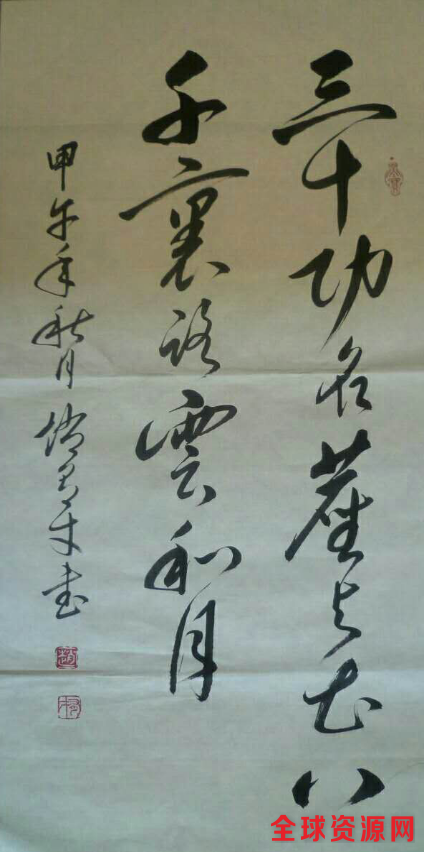 三十功名塵与土八
千裏路雲和月
甲午年秋月書
全球资源网